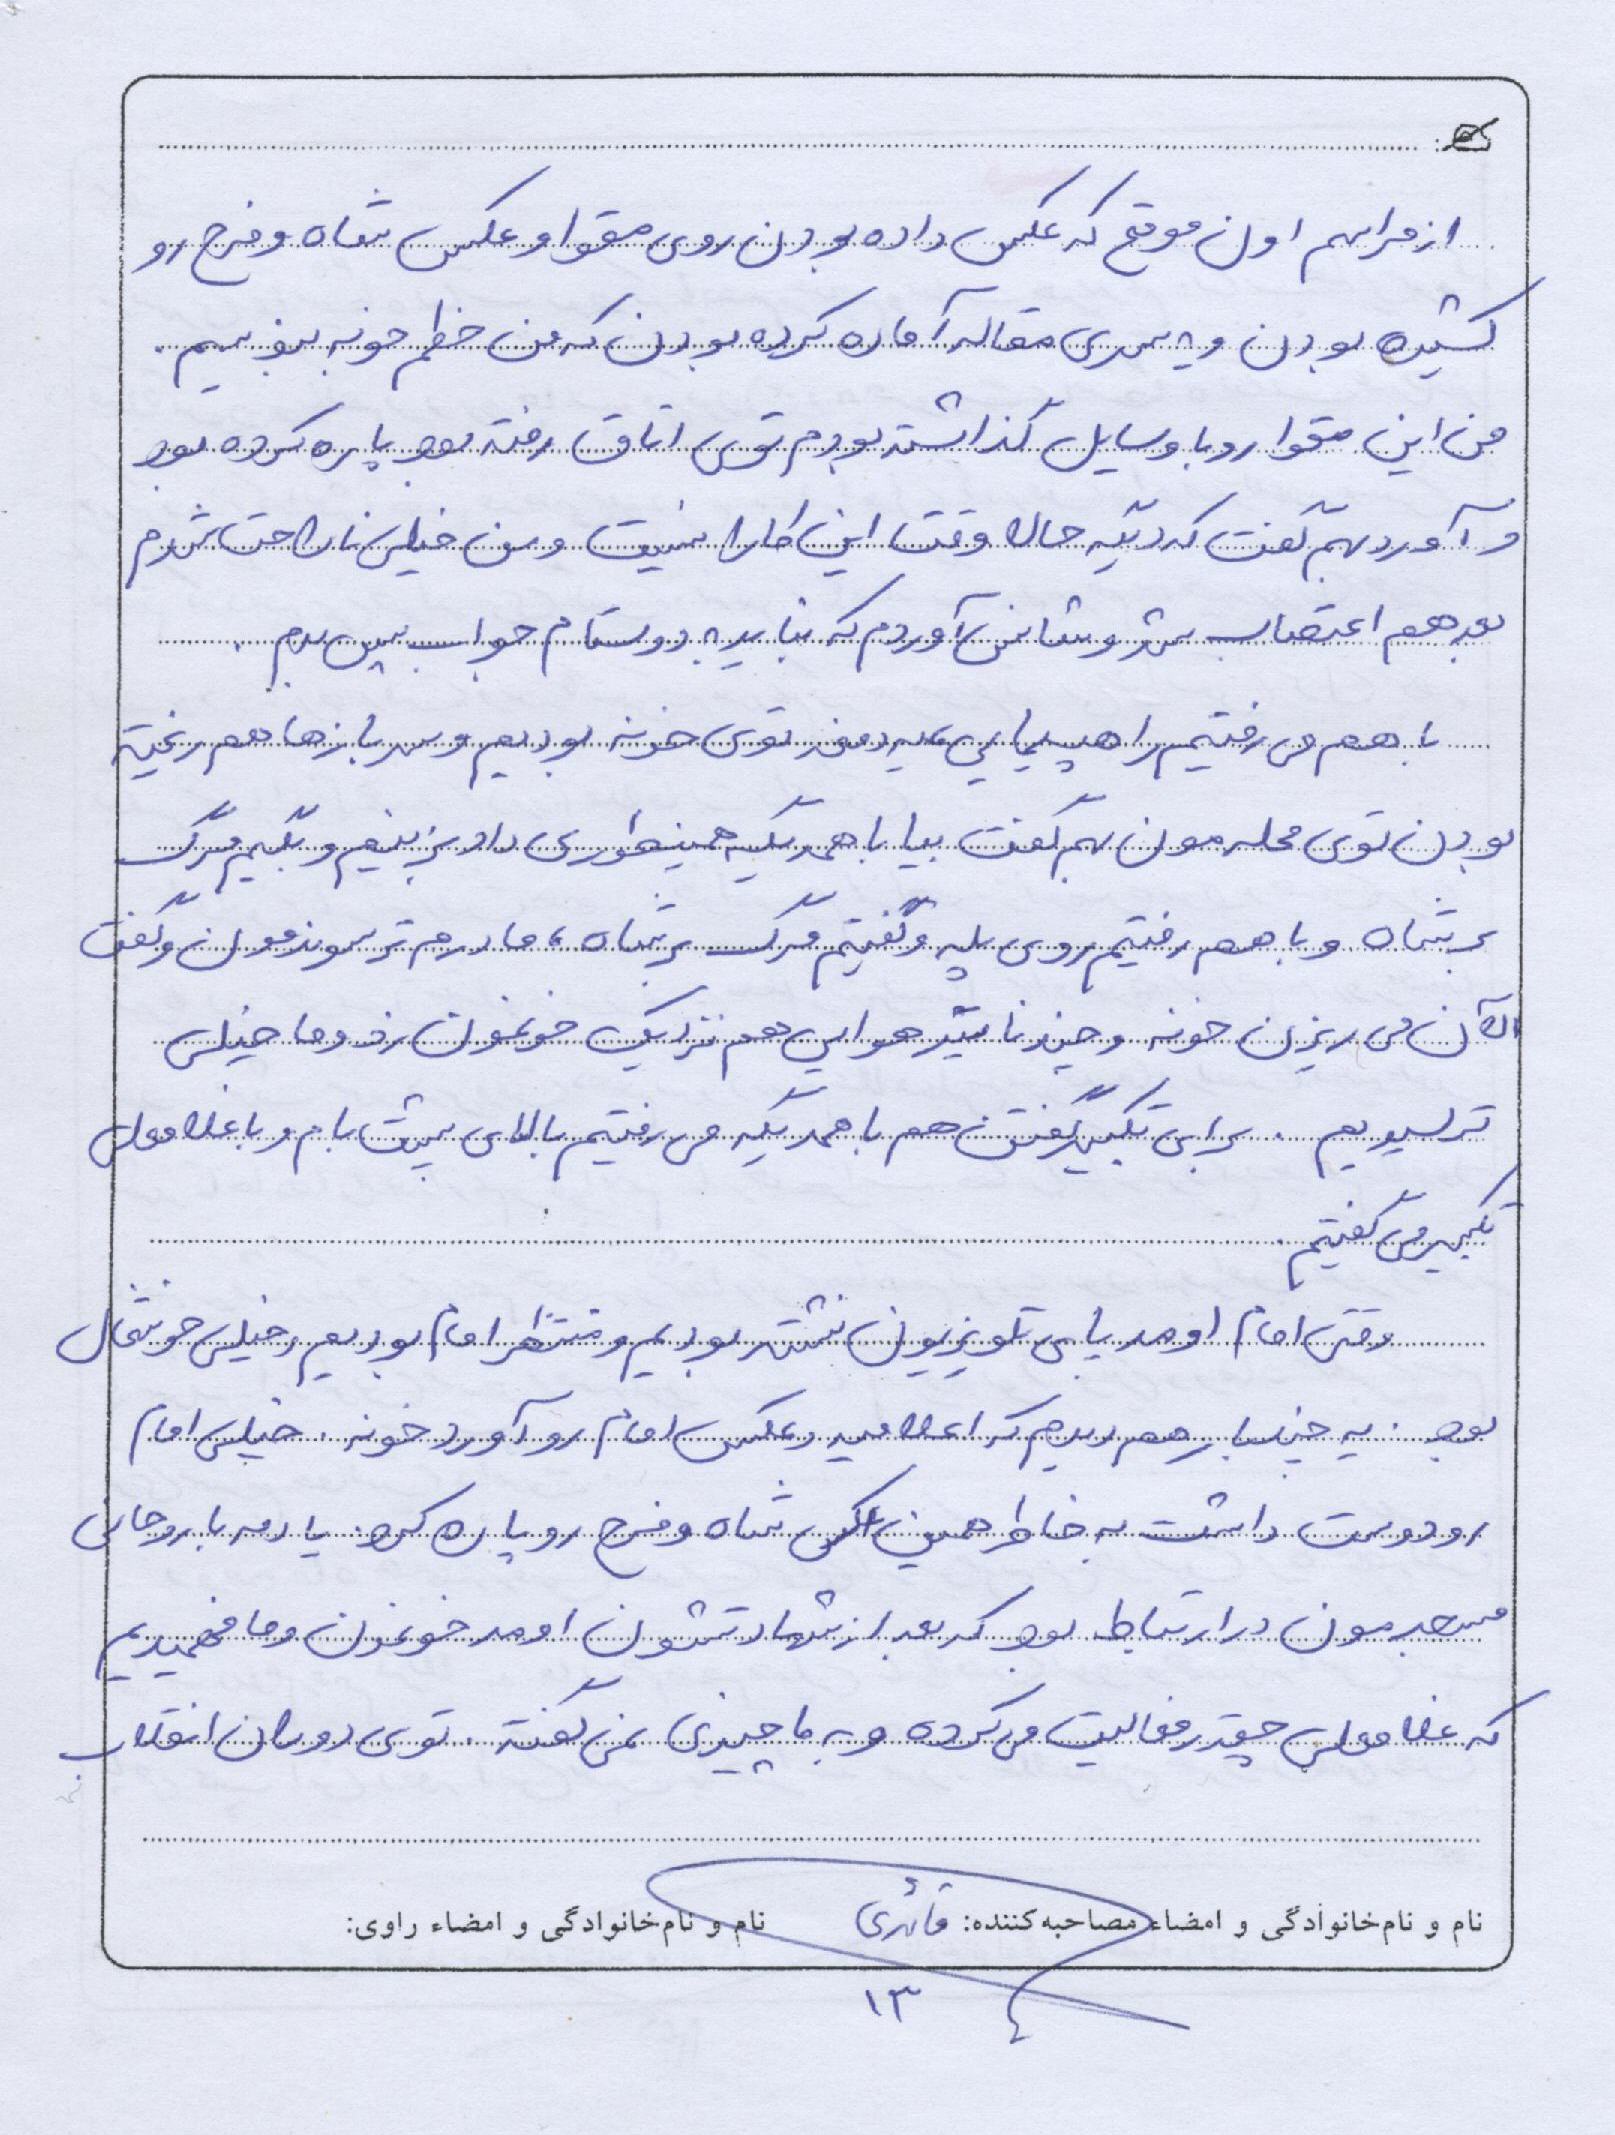 از مراسم اون موقع که عکس داده بودن روی مقوا و عکس شاه و فرح رو
کشیده بودن و یه سری مقاله آماده کرده بودن که من خطم خوبه بنویسیم.
من این مقوا رو با وسایل گذاشته بودم توی اتاق رفته بود پاره کرده بود
و آورد بهم گفت که دیگه حالا وقت این کارا نیست و من خیلی ناراحت شدم
بعد هم اعتصاب شد و شانس آوردم که نباید به دوستام جواب پس بدم.
با هم می رفتیم راهپیمایی، یه دفعه توی خونه بودیم و سربازها هم ریخته
بودن توی محله مون بهم گفت بیا با همدیگه همینطوری داد بزنیم و بگیم مرگ
بر شاه و با هم رفتیم روی پله و گفتیم مرگ بر شاه، مادرم ترسوندمون و گفت
الآن می ریزن خونه و چند تا تیر هوایی هم نزدیک خونمون زد و ما خیلی
ترسیدیم. برای تکبیر گفتن هم با همدیگه می رفتیم بالای پشت بام و با غلامعلی
تکبیر می گفتیم.
وقتی امام اومد پای تلویزیون نشسته بودیم و منتظر امام بودیم، خیلی خوشحال
بود. یه چند بار هم دیدم که اعلامیه و عکس امام رو آورد خونه. خیلی امام
رو دوست داشت به خاطر همین عکس شاه و فرح رو پاره کرد. یادمه با روحانی
مسجدمون در ارتباط بود که بعد از شهادتشون اومد خونمون و ما فهمیدیم
که غلامعلی چقدر فعالیت می کرده و به ما چیزی نمی گفته. توی دوران انقلاب
نام و نام‌خانوادگی و امضاء مصاحبه‌کننده: قائدی نام و نام‌خانوادگی و امضاء راوی:
۱۳